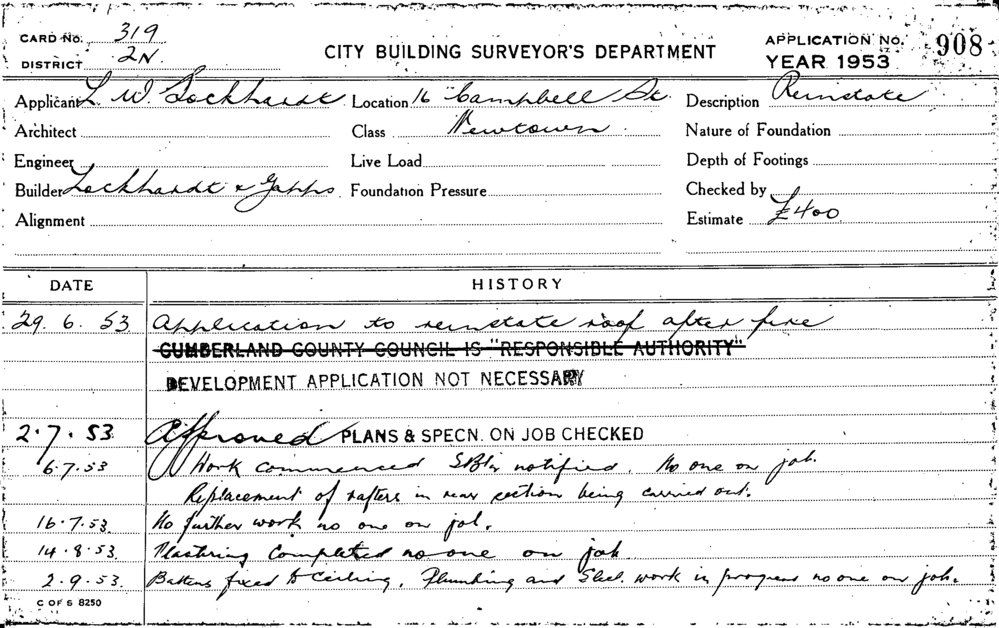 CARD No. 319
DISTRICT 2N.
CITY BUILDING SURVEYOR'S DEPARTMENT
APPLICATION No. 908
YEAR 1953
Applicant L. W. Lockhardt Location 16 Campbell St. Description Reinstate
Architect Class Newtown Nature of Foundation
Engineer Live Load Depth of Footings
Builder Lockhardt & Gapps Foundation Pressure Checked by
Alignment Estimate £400
DATE HISTORY
29. 6. 53 Application to reinstate roof after fire
CUMBERLAND COUNTY COUNCIL IS "RESPONSIBLE AUTHORITY"
DEVELOPMENT APPLICATION NOT NECESSARY
2. 7. 53 Approved PLANS & SPECN. ON JOB CHECKED
6.7.53 Work commenced notified. No one on job.
Replacement of rafters in rear section being carried out.
16.7.53 No further work no one on job.
14.8.53. Plastering completed no one on job
2.9.53. Battens fixed to ceiling. Plumbing and work in progress no one on job.
C OF S 8250